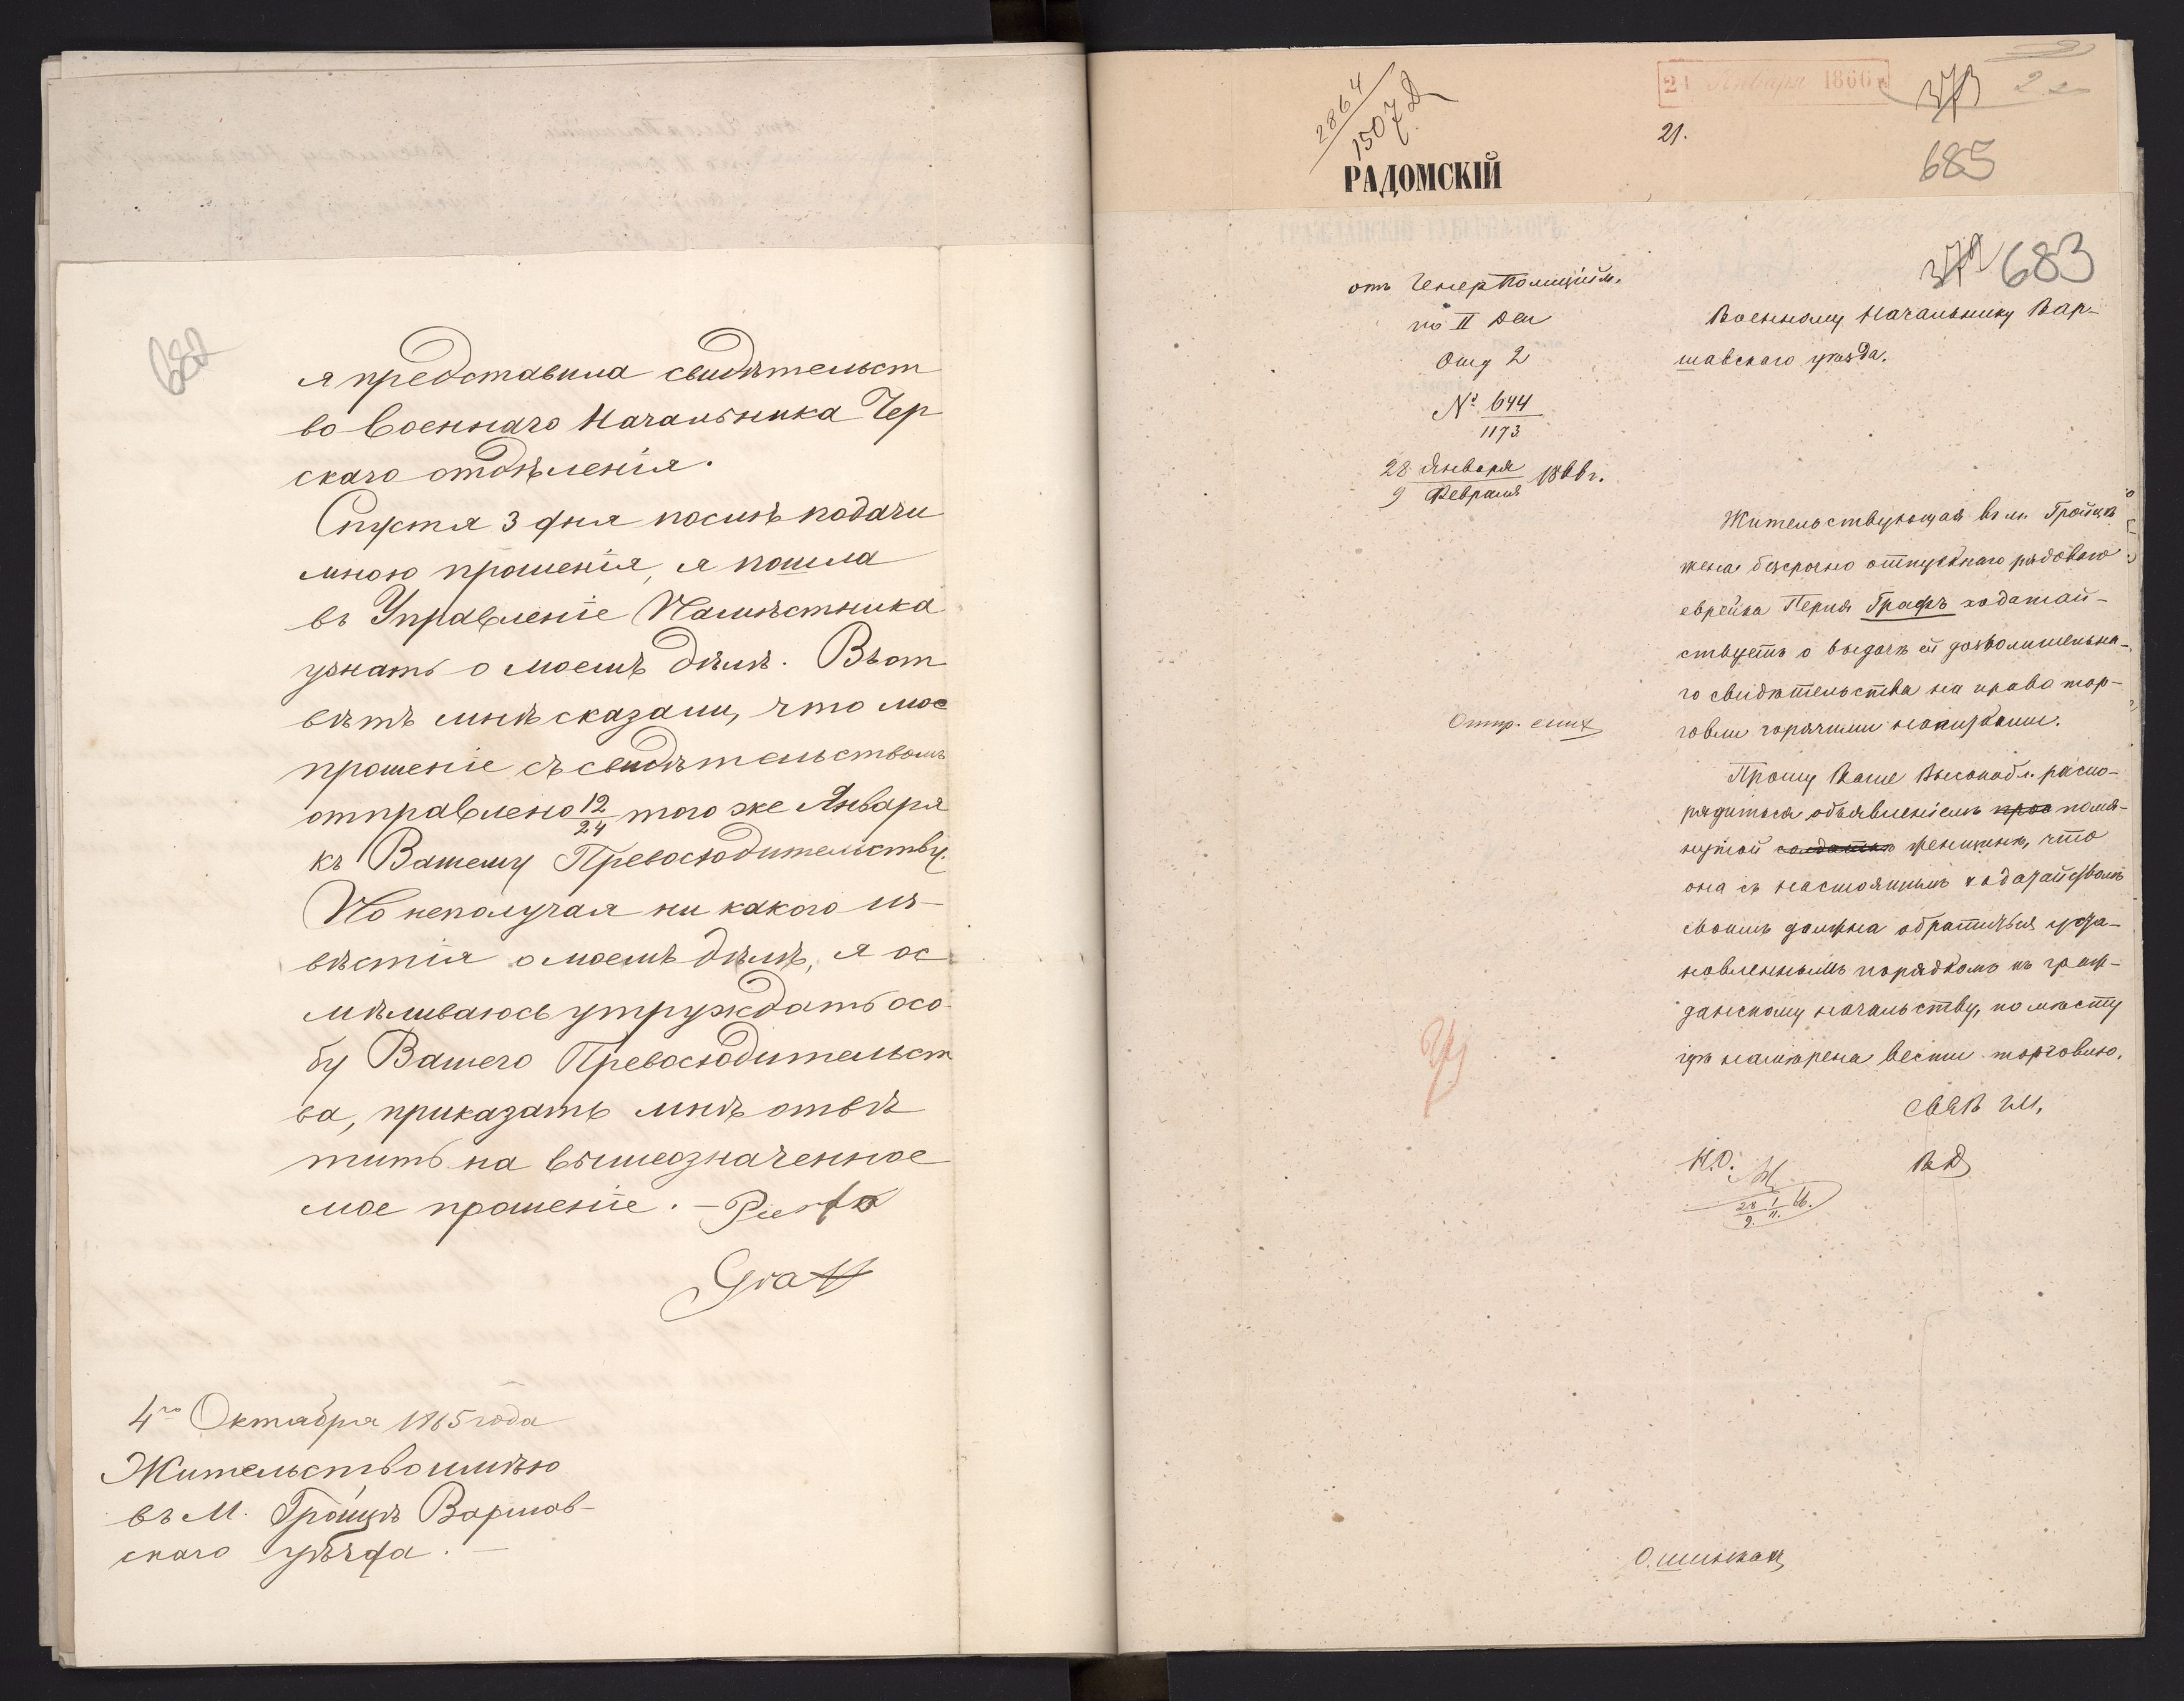 682
я представила свидѣтельст
во Военнаго Начальника Чер
скаго отдѣленія.
Спустя 3 дня послѣ подачи
мною прошенія, я пошла
въ Управленіе Намѣстника
узнать о моемъ дѣлѣ. Въ от
вѣтъ мнѣ сказали, что мое
прошеніе съ свидѣтельствомъ
отправлено 12/24 того же Января
къ Вашему Превосходительству.
Но неполучая ни какого из-
вѣстія о моемъ дѣлѣ, я ос
мѣливаюсь утруждать осо-
бу Вашего Превосходительст
ва, приказать мнѣ отвѣ
тить на вышеозначенное
мое прошеніе. – Perla
Graff
4го Октября 1865 года
Жительство имѣю
въ М. Гройцѣ Варшав-
скаго уѣзда. –
2864
1507
21 Января 1866 г.
373
21.
685
РАДОМСКІЙ
372 683
отъ Генер Полиційм.
по II Деп
Отд 2
№ 644/1173
28 Января
9 Февраля 1866 г.
Военному Начальнику Вар-
шавскаго уѣзда.
Жительствующая въ м. Гройцѣ
жена безсрочно отпускнаго рядоваго
еврейка Перля Графъ ходатай-
ствуетъ о выдачѣ ей дозволительна-
го свидѣтельства на право тор-
говли горячими напитками.
Прошу Ваше Высокобл. распо-
рядиться объявленіемъ помя-
нутой солдаткѣ женщинѣ, что
она съ настоящимъ ходатайствомъ
своимъ должна обратиться уста-
новленнымъ порядкомъ къ граж-
данскому начальству, по мѣсту
гдѣ намѣрена вести торговлю.
Н.О.
28/9 I/II 66.